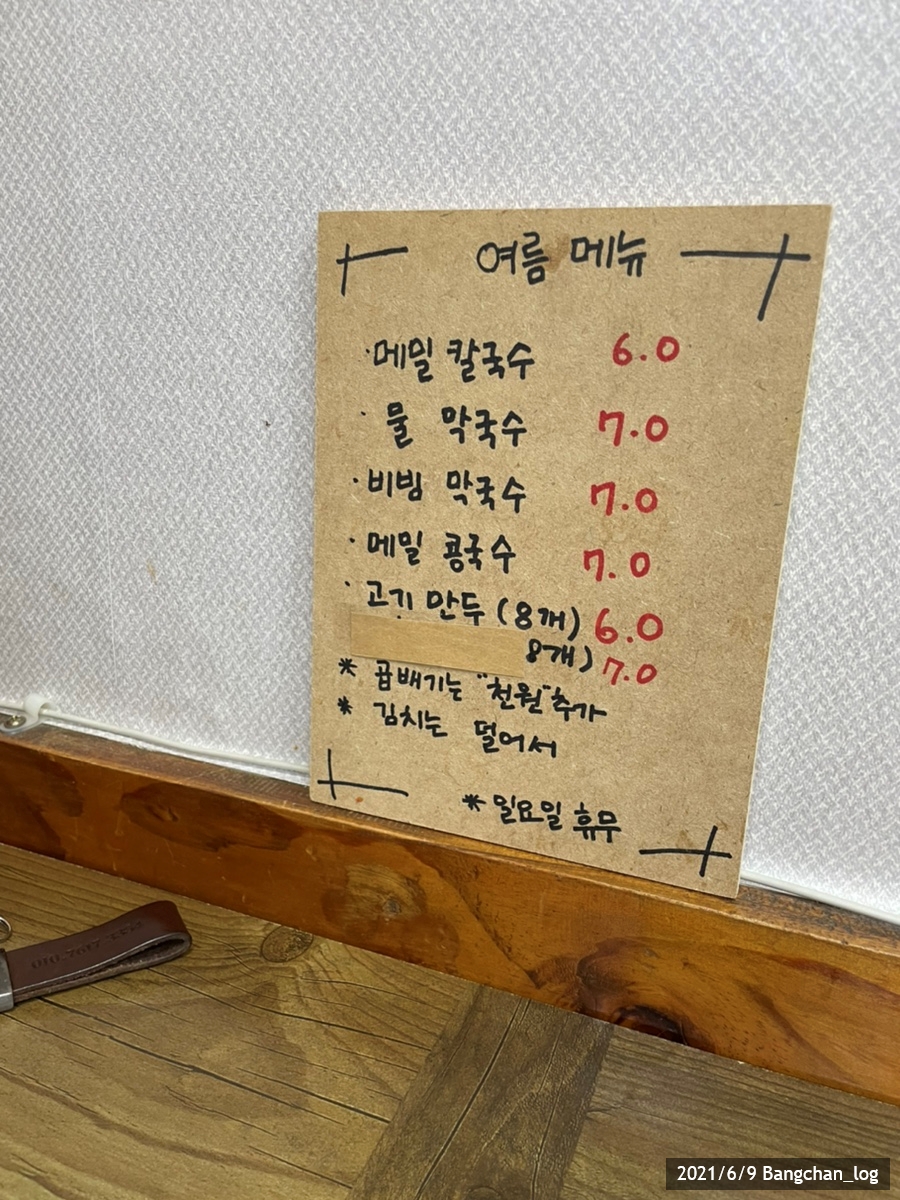 여름 메뉴
·메밀 칼국수 6.0
·물 막국수 7.0
·비빔 막국수 7.0
·메밀 콩국수 7.0
·고기 만두 (8개) 6.0
8개) 7.0
* 곱배기는 "천원" 추가
* 김치는 덜어서
* 일요일 휴무
2021/6/9 Bangchan_log